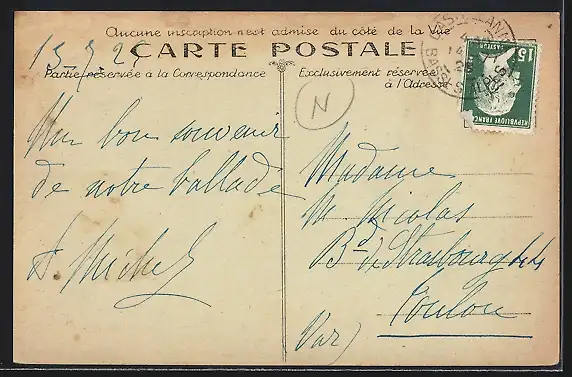 Aucune inscription n'est admise du côté de la Vue
CARTE POSTALE
Partie réservée à la Correspondance
Exclusivement réservée
à l'Adresse
N
Un bon souvenir
de notre ballade
A. Michel
Madame
M Nicolas
Bd de Strasbourg
Toulon
Var)
15
REPUBLIQUE FRANC
PASTEUR